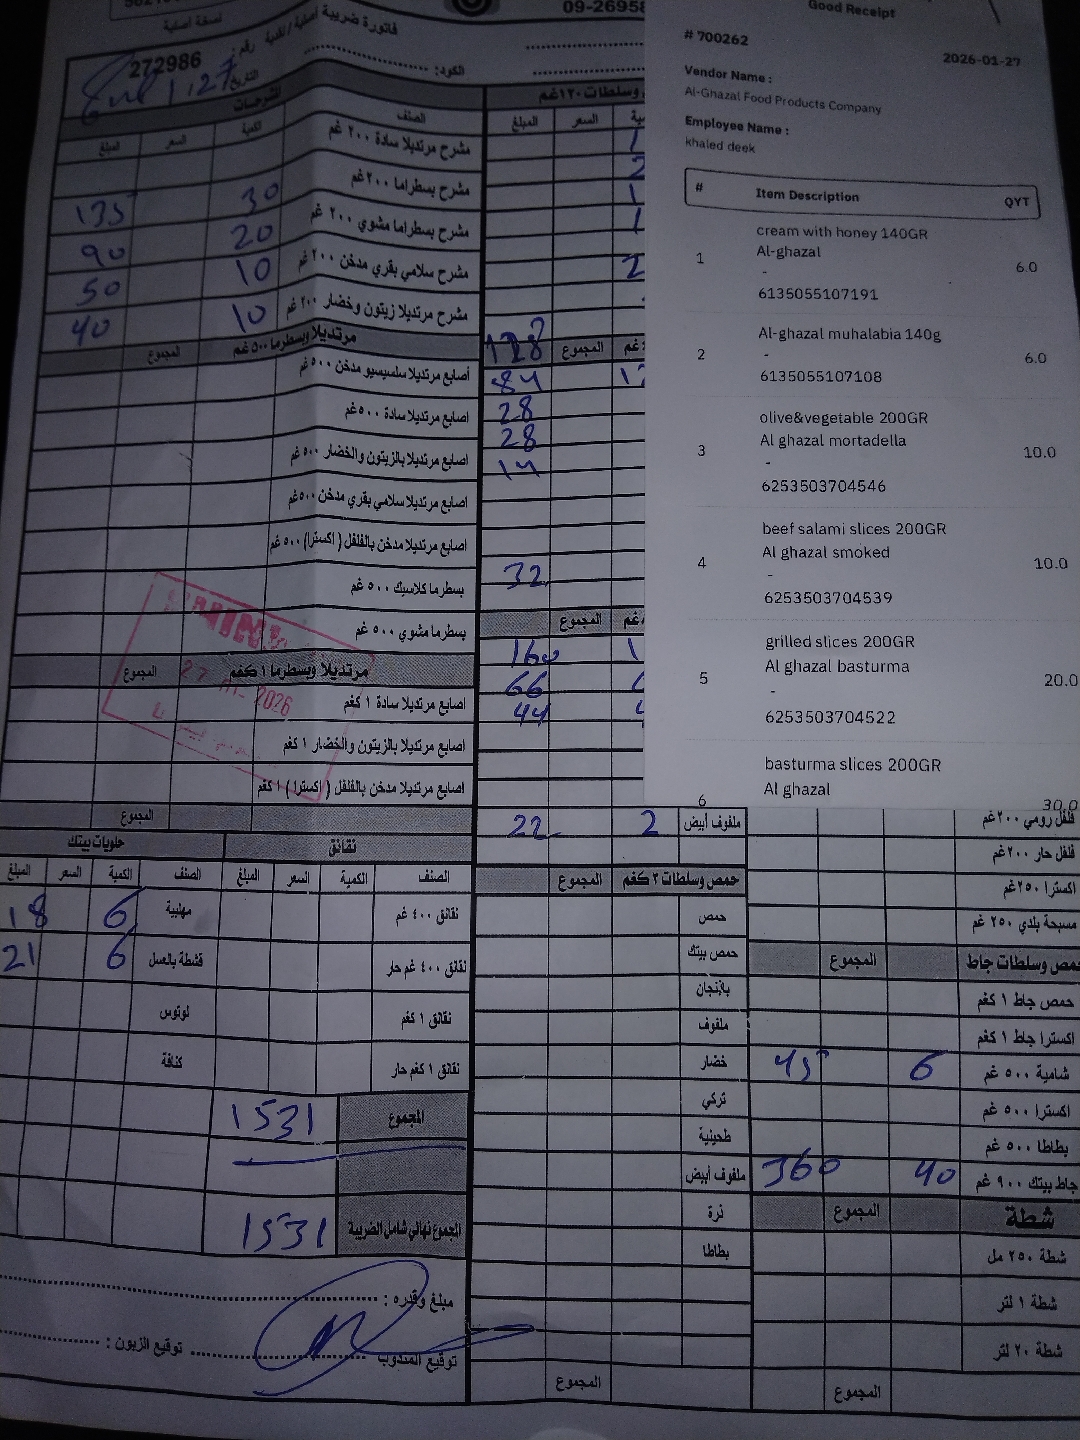 09-26958
نسخة أصلية
فاتورة ضريبة أصلية / نقدية رقم:
272986
الكود:
التاريخ:
الصنف
الكمية
السعر
المبلغ
مشرح مرتديلا سادة ٢٠٠ غم
مشرح بسطراما ٢٠٠ غم 30 135
مشرح بسطراما مشوي ٢٠٠ غم 20 90
مشرح سلامي بقري مدخن ٢٠٠ غم 10 50
مشرح مرتديلا زيتون وخضار ٢٠٠ غم 10 40
مرتديلا وبسطرما ٥٠٠ غم المجموع
أصابع مرتديلا سلسيسيو مدخن ٥٠٠ غم
اصابع مرتديلا سادة ٥٠٠ غم
اصابع مرتديلا بالزيتون والخضار ٥٠٠ غم
اصابع مرتديلا سلامي بقري مدخن ٥٠٠ غم
اصابع مرتديلا مدخن بالفلفل ( اكسترا ) ٥٠٠ غم
بسطرما كلاسيك ٥٠٠ غم
بسطرما مشوي ٥٠٠ غم
مرتديلا وبسطرما ١ كغم المجموع
اصابع مرتديلا سادة ١ كغم
اصابع مرتديلا بالزيتون والخضار ١ كغم
اصابع مرتديلا مدخن بالفلفل ( اكسترا ) ١ كغم
المجموع
2026
وسلطات ١٢٠ غم
السعر
المبلغ
1
2
1
1
2
128
المجموع
84
28
28
14
32
المجموع
160
66
44
ملفوف أبيض 2 22
نقانق
الصنف الكمية السعر المبلغ
نقانق ٤٠٠ غم
نقانق ٤٠٠ غم حار
نقانق ١ كغم
نقانق ١ كغم حار
المجموع 1531
المجموع نهائي شامل الضريبة 1531
حلويات بيتك
الصنف الكمية السعر المبلغ
مهلبية 6 18
قشطة بالعسل 6 21
لوتوس
كنافة
حمص وسلطات ٣ كغم المجموع
حمص
حمص بيتك
باذنجان
ملفوف
خضار
تركي
طحينية
ملفوف أبيض
ذرة
بطاطا
المجموع
فلفل رومي ٢٠٠ غم
فلفل حار ٢٠٠ غم
اكسترا ٢٥٠ غم
مسبحة بلدي ٢٥٠ غم
حمص وسلطات جاط المجموع
حمص جاط ١ كغم
اكسترا جاط ١ كغم
شامية ٥٠٠ غم 6 45
اكسترا ٥٠٠ غم
بطاطا ٥٠٠ غم
جاط بيتك ٩٠٠ غم 40 360
شطة المجموع
شطة ٢٥٠ مل
شطة ١ لتر
شطة ٢٠ لتر
المجموع
مبلغ وقدره :
توقيع المندوب
توقيع الزبون :
Good Receipt
# 700262
2026-01-27
Vendor Name :
Al-Ghazal Food Products Company
Employee Name :
khaled deek
# Item Description QYT
1 cream with honey 140GR 6.0
Al-ghazal
-
6135055107191
2 Al-ghazal muhalabia 140g 6.0
-
6135055107108
3 olive&vegetable 200GR 10.0
Al ghazal mortadella
-
6253503704546
4 beef salami slices 200GR 10.0
Al ghazal smoked
-
6253503704539
5 grilled slices 200GR 20.0
Al ghazal basturma
-
6253503704522
6 basturma slices 200GR 30.0
Al ghazal